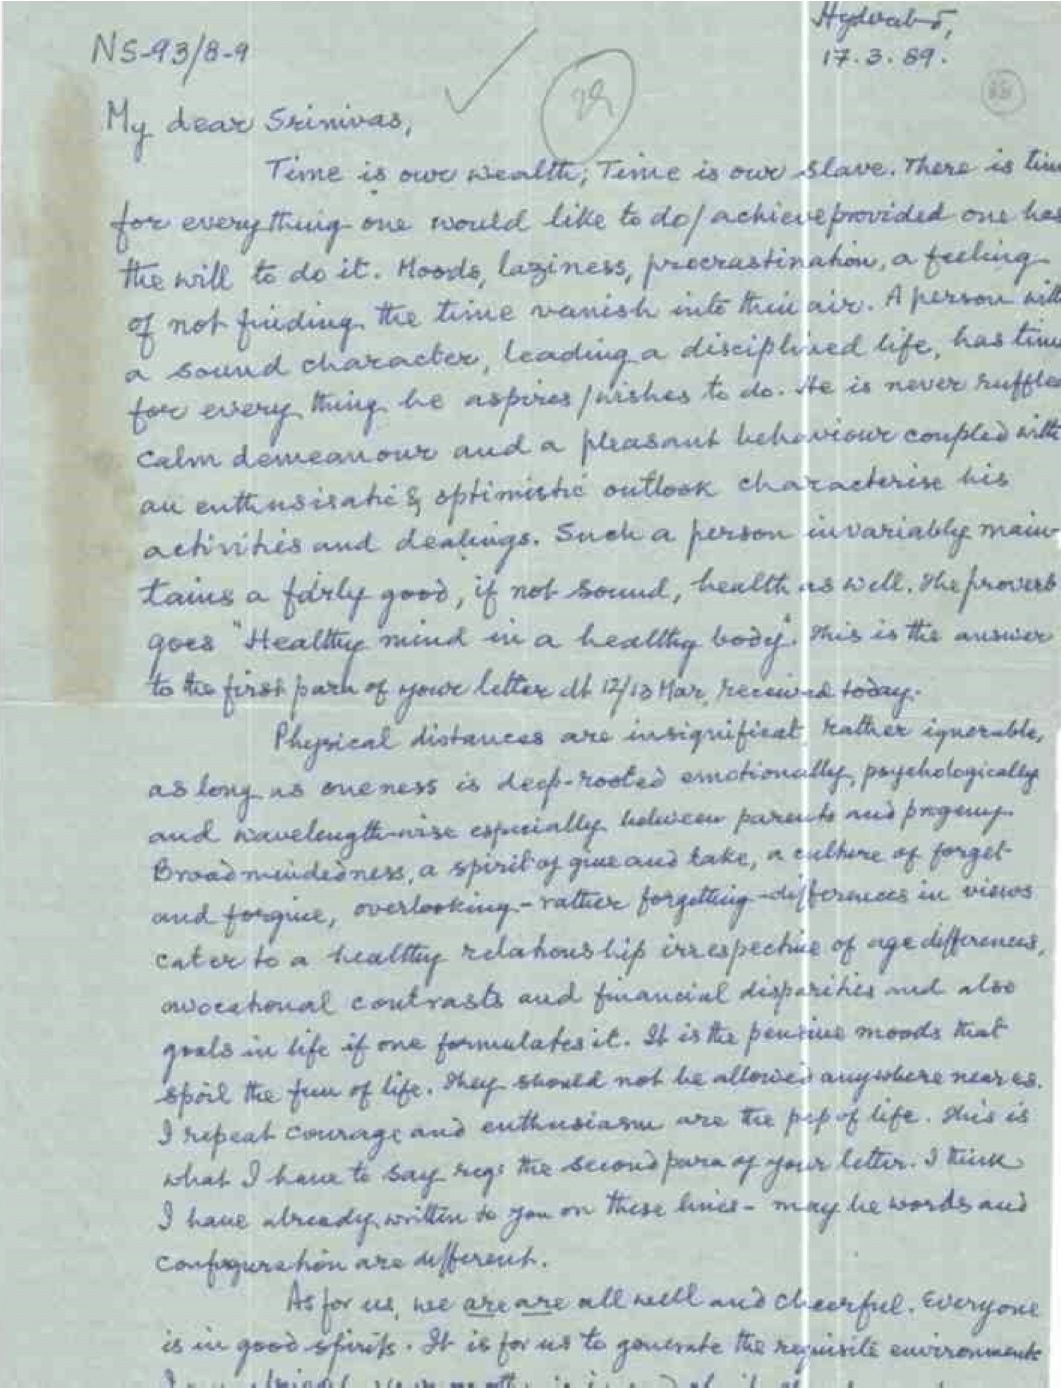 Hyderabad,
NS-93/8-9
17.3.89.
29
My dear Srinivas,
Time is our wealth; Time is our slave. There is tim
for everything one would like to do/achieve provided one has
the will to do it. Moods, laziness, procrastination, a feeling
of not finding the time vanish into thin air. A person with
a sound character, leading a disciplined life, has tim
for every thing he aspires/wishes to do. He is never ruffled
calm demeanour and a pleasant behaviour coupled with
an enthusisatic & optimistic outlook characterise his
activities and dealings. Such a person invariably main-
tains a fairly good, if not sound, health as well. The proverb
goes "Healthy mind in a healthy body". This is the answer
to the first para of your letter dt 12/13 Mar, received today.
Physical distances are insignificat, rather ignorable,
as long as oneness is deep-rooted emotionally, psychologically
and wavelength-wise especially between parents and progeny.
Broadmindedness, a spirit of give and take, a culture of forget
and forgive, overlooking - rather forgetting - differences in views
cater to a healthy relationship irrespective of age differences,
avocational contrasts and financial disparities and also
goals in life if one formulates it. It is the pensive moods that
spoil the fun of life. They should not be allowed anywhere near us.
I repeat courage and enthusiasm are the pep of life. This is
what I have to say reg: the second para of your letter. I think
I have already written to you on these lines - may be words and
configuration are different.
As for us, we are are all well and cheerful. Everyone
is in good spirits. It is for us to generate the requisite environments